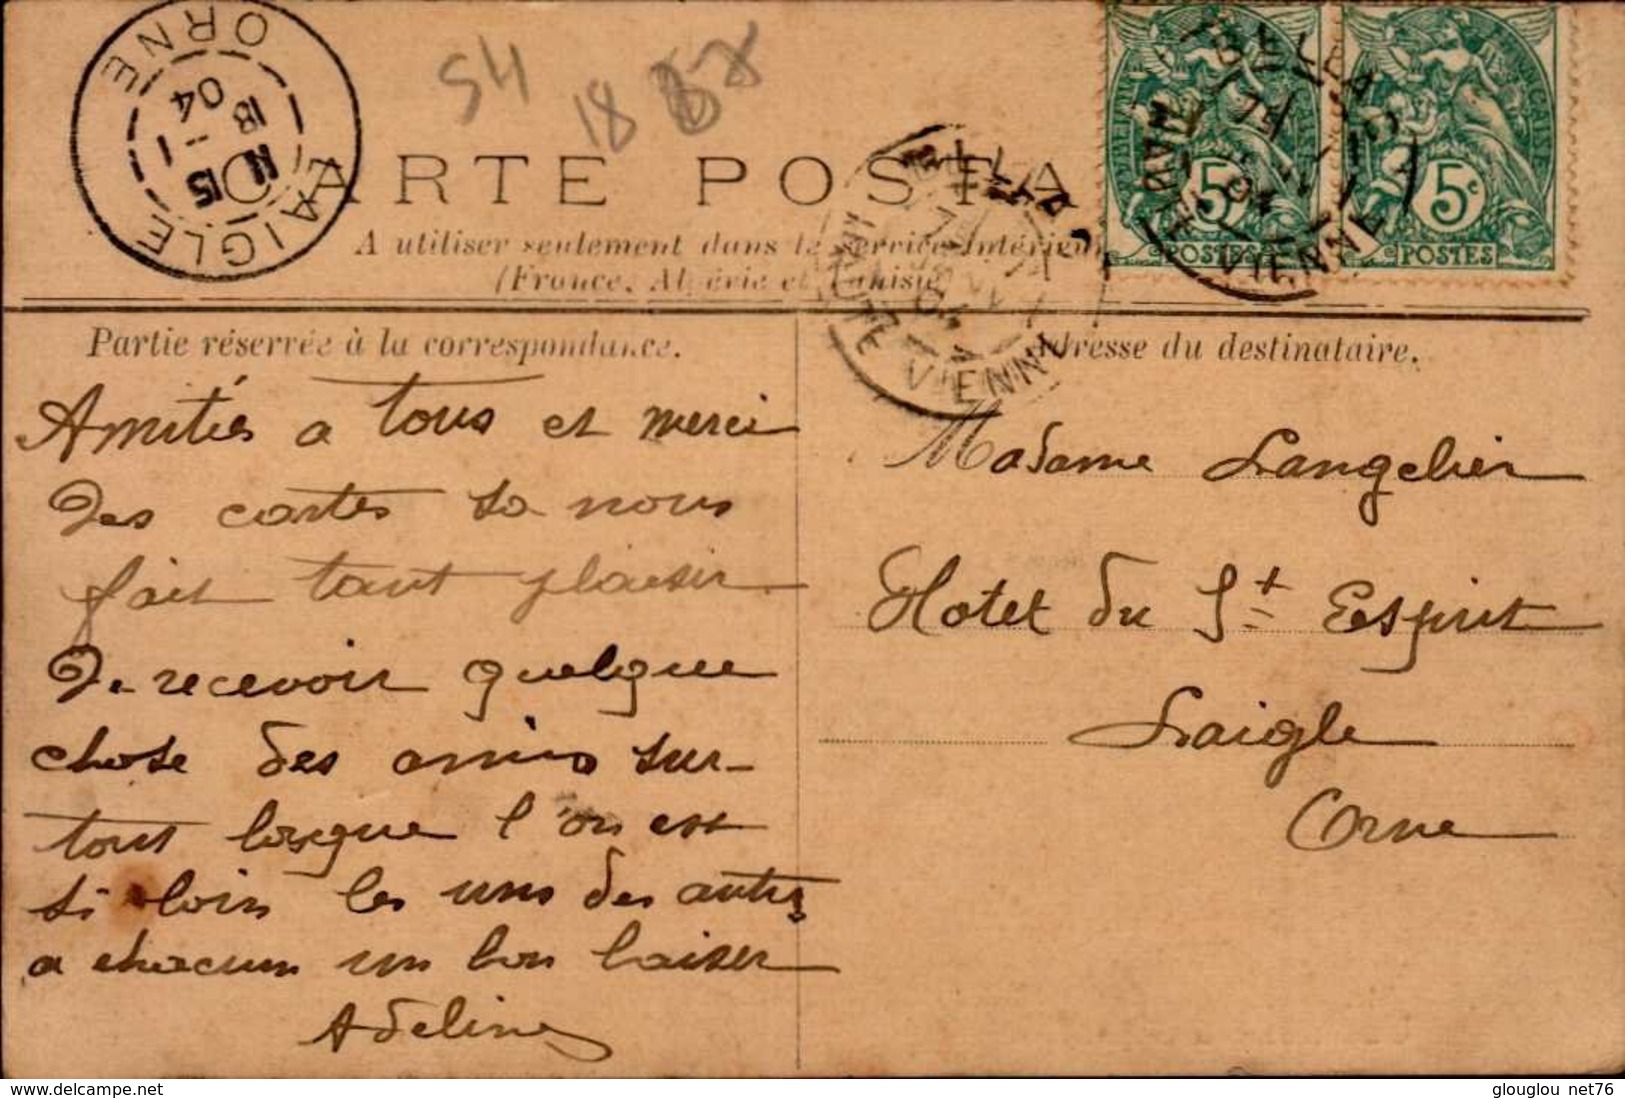 54
18 88
CARTE POSTA
A utiliser seulement dans le service Intérieur
(France, Algérie et Tunisie
LAIGLE ORNE
11 5
18 - 1
04
BELLA
HAUTE VIENNE
BELLA
HAUTE VIENNE
5c
POSTES
5c
POSTES
Partie réservée à la correspondance.
Amitiés a tous et merci
des cartes sa nous
fait tant plaisir
de recevoir quelque
chose des amis sur-
tout lorsque l'on est
si loin les uns des autres
a chacun un bon baiser
Adeline
Adresse du destinataire.
Madame Langelier
Hotel du St Esprit
Laigle
Orne
www.delcampe.net
glouglou net76